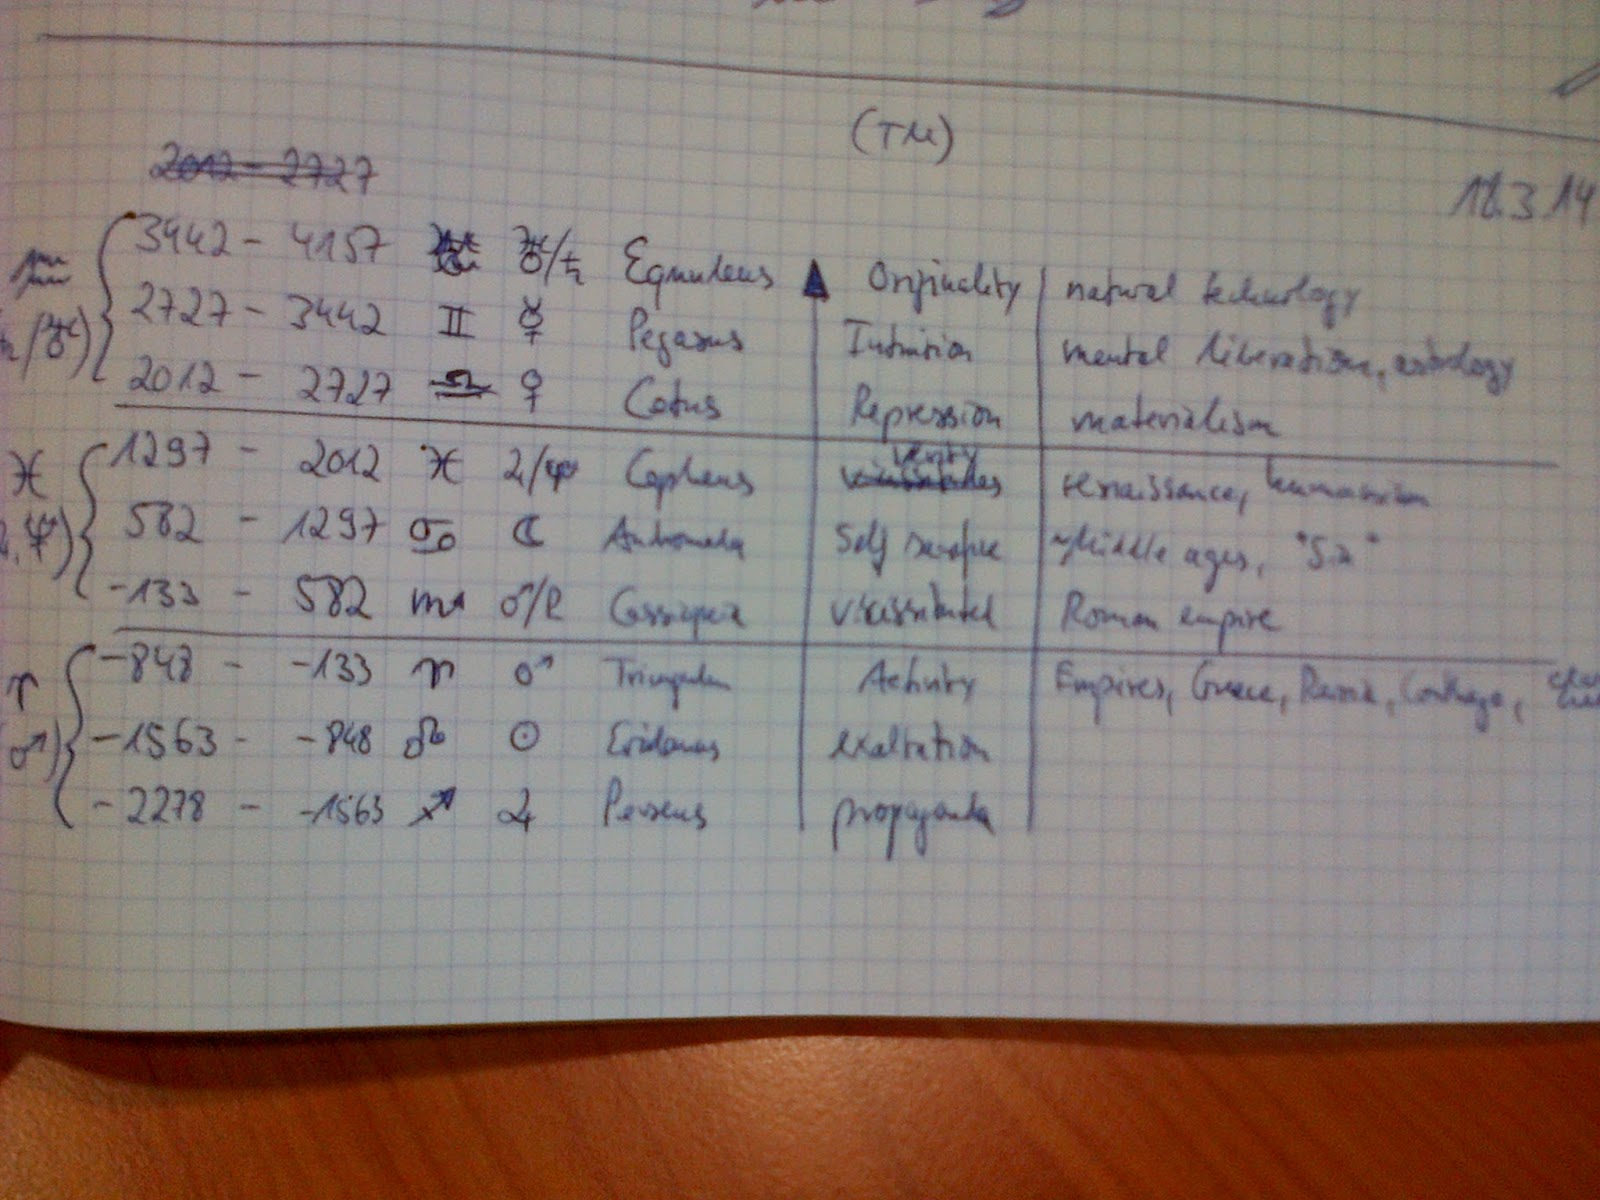 (TM)
2012 - 2727
18.3.14
♒ 3442 - 4157 ♅/♄ Equuleus Originality natural technology
2727 - 3442 ♊ ☿ Pegasus Intuition mental liberation, astrology
2012 - 2727 ♎ ♀ Cetus Repression materialism
verity
♓ 1297 - 2012 ♓ ♃/♆ Cepheus vicissitudes renaissance, humanism
582 - 1297 ♋ ☾ Andromeda Self sacrifice ~Middle ages, "Sin"
-133 - 582 ♏ ♂/P Cassiopeia vicissitudes Roman empire
♈ -848 - -133 ♈ ♂ Triangulum Activity Empires, Greece, Carthago,
(♂) -1563 - -848 ♌ ☉ Eridanus exaltation
-2278 - -1563 ♐ ♃ Perseus propaganda